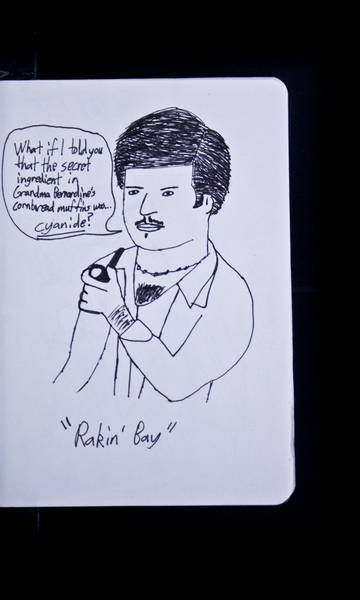 What if I told you
that the secret
ingredient in
Grandma Bernardine's
cornbread muffins was...
cyanide?
"Rakin' Bay"